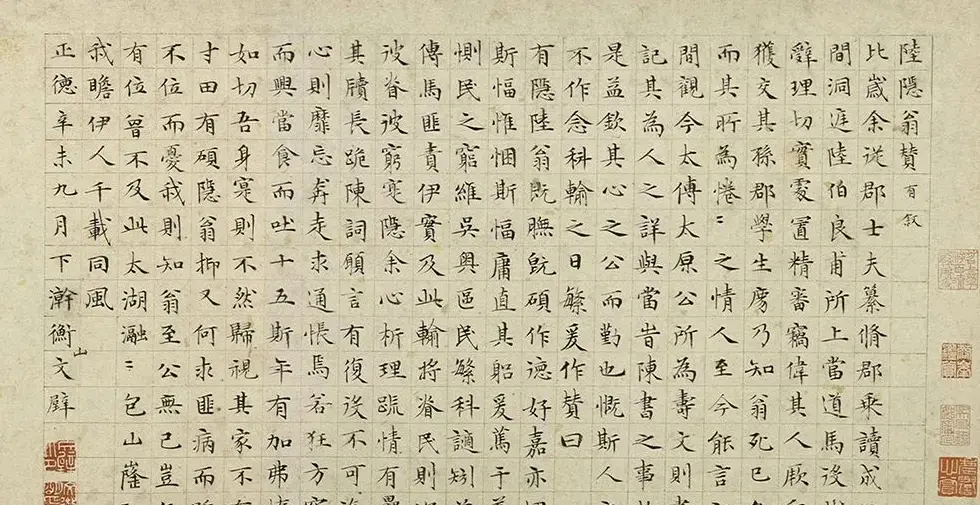 陸隱翁贊 有敘
比歲余從郡士夫纂脩郡乘讀成
間洞庭陸伯良甫所上當道馬後
辭理切實處置精審竊偉其人厥
獲交其孫郡學生廙乃知翁死已
而其所為惓〻之情人至今能言
間觀今太傅太原公所為壽文則
記其為人之詳與當旹陳書之事
是益欽其心之公而勤也慨斯人
不作念科輸之日繁爰作贊曰
有隱陸翁旣膴旣碩作德好嘉亦
斯愊惟悃斯愊庸直其躬爰篤于
惻民之窮維吳輿區民繁科讁矧
傳馬匪責伊實及此輸將眷民則
彼眷彼窮寔隱余心析理疏情有
其牘長跪陳詞願言有復沒不可
心則靡忘奔走求通悵焉若狂方
而興當食而吐十五斯年有加弗
如切吾身寔則不然歸視其家不
寸田有碩隱翁抑又何求匪病而
不位而憂我則知翁至公無已豈
有位曾不及此太湖瀜〻包山
我瞻伊人千載同風
正德辛未九月下澣衡山文壁